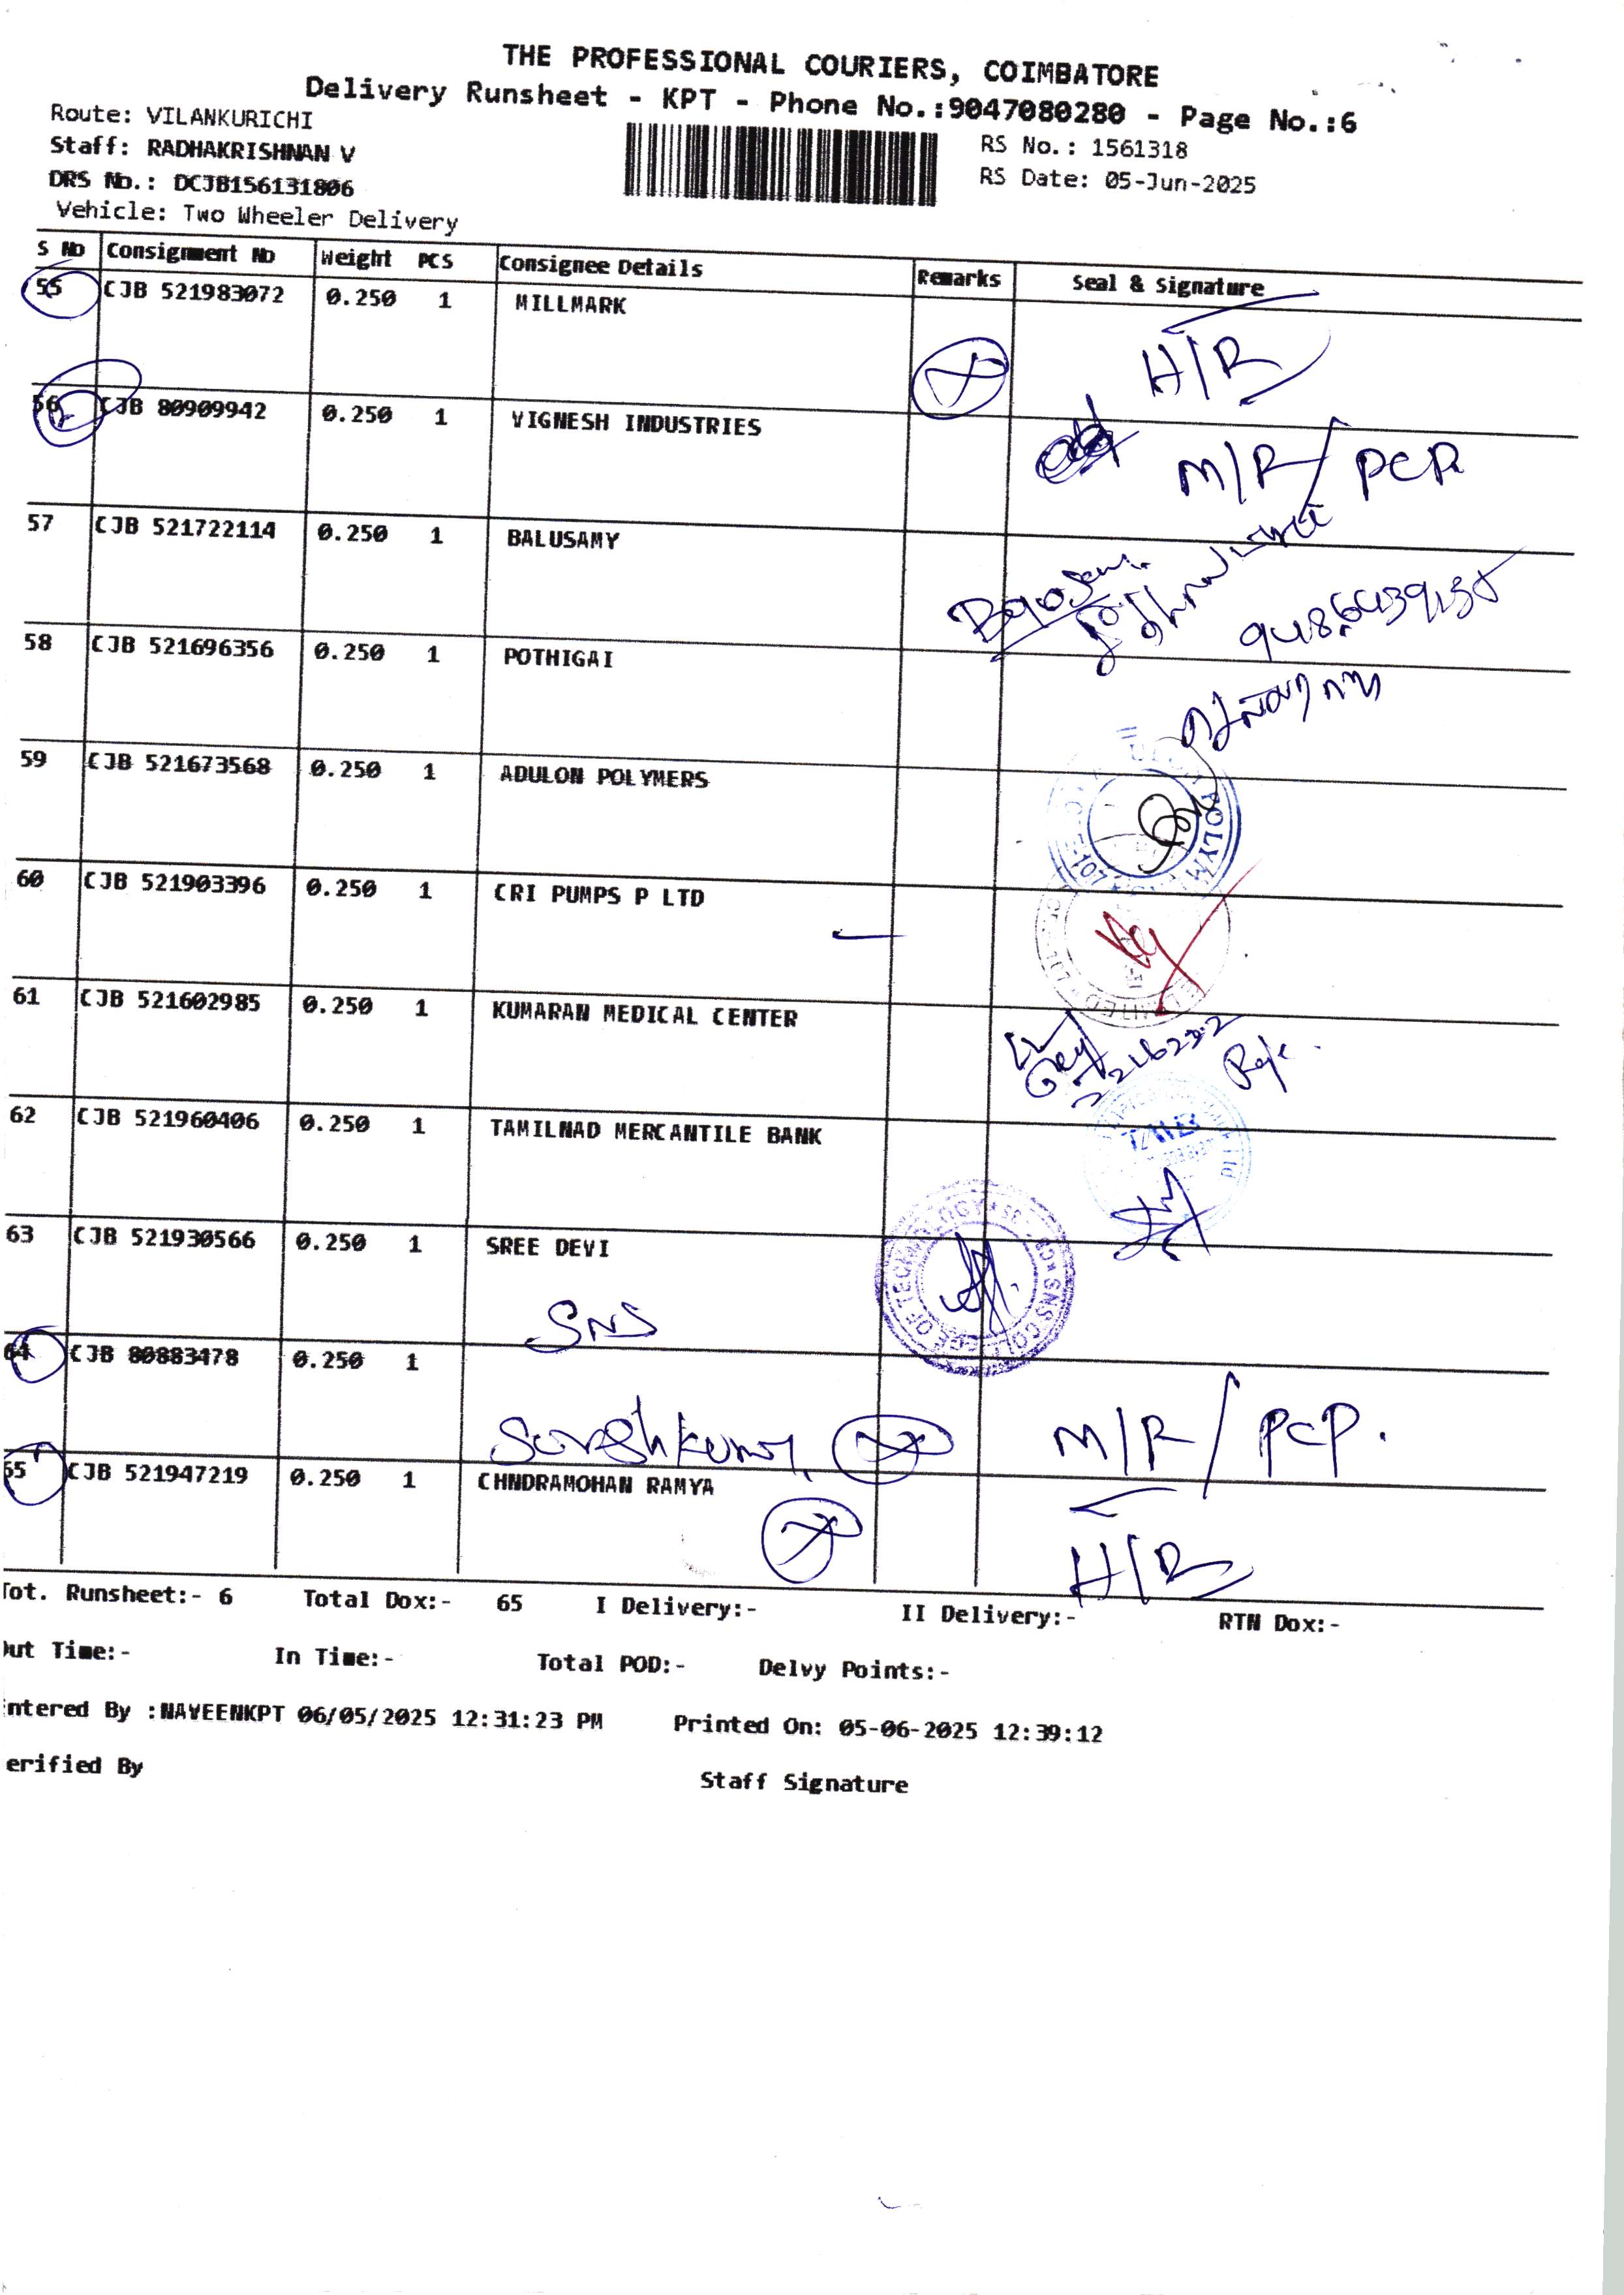 THE PROFESSIONAL COURIERS, COIMBATORE
Delivery Runsheet - KPT - Phone No.:9047080280 - Page No.:6
Route: VILANKURICHI
Staff: RADHAKRISHNAN V
RS No.: 1561318
DRS No.: DCJB156131806
RS Date: 05-Jun-2025
Vehicle: Two Wheeler Delivery
S No Consignment No Weight PCS Consignee Details Remarks Seal & Signature
55 CJB 521983072 0.250 1 MILLMARK
H/R
56 CJB 80909942 0.250 1 VIGNESH INDUSTRIES
M/R/ PCR
57 CJB 521722114 0.250 1 BALUSAMY
58 CJB 521696356 0.250 1 POTHIGAI
59 CJB 521673568 0.250 1 ADULON POLYMERS
60 CJB 521903396 0.250 1 CRI PUMPS P LTD
61 CJB 521602985 0.250 1 KUMARAN MEDICAL CENTER
62 CJB 521960406 0.250 1 TAMILNAD MERCANTILE BANK
TMB
63 CJB 521930566 0.250 1 SREE DEVI
SNS
SNS COLLEGE OF TECHNOLOGY
64 CJB 80883478 0.250 1
M/R/ PCP.
65 CJB 521947219 0.250 1 CHNDRAMOHAN RAMYA
H/R
Tot. Runsheet:- 6 Total Dox:- 65 I Delivery:- II Delivery:- RTN Dox:-
Out Time:- In Time:- Total POD:- Delvy Points:-
ntered By :NAVEENKPT 06/05/2025 12:31:23 PM Printed On: 05-06-2025 12:39:12
erified By Staff Signature